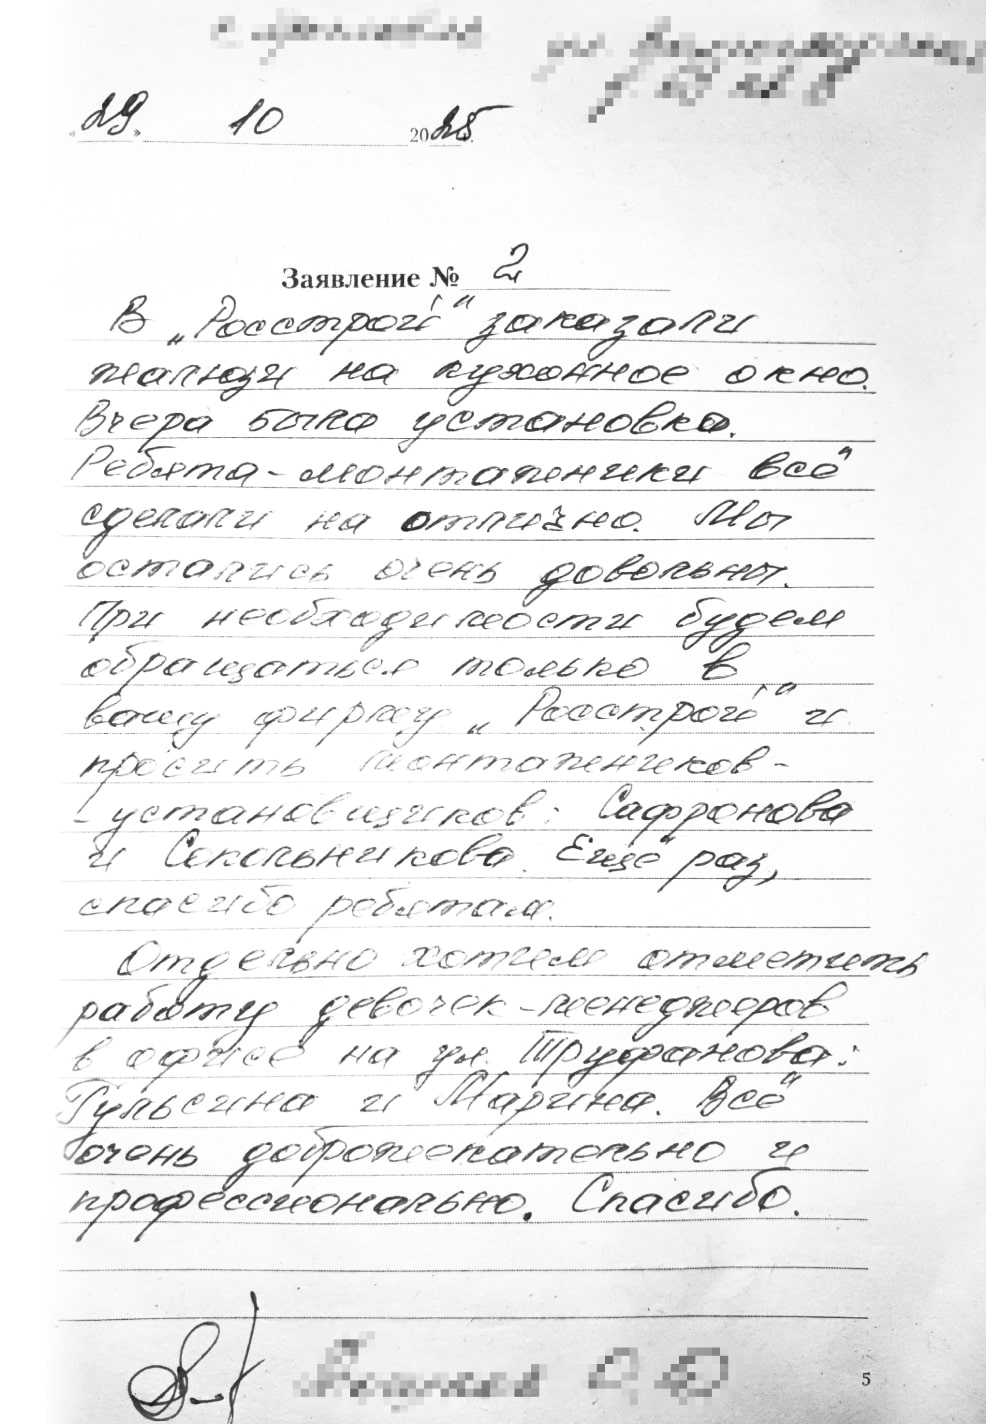 «29» 10 2025
Заявление № 2
В „Росстрой“ заказали
жалюзи на кухонное окно.
Вчера была установка.
Ребята-монтажники всё
сделали на отлично. Мы
остались очень довольны.
При необходимости будем
обращаться только в
вашу фирму „Росстрой“ и
просить монтажников-
-установщиков: Сафронова
и Сокольникова. Ещё раз,
спасибо ребятам.
Отдельно хотим отметить
работу девочек-менеджеров
в офисе на ул. Труфанова:
Гульсина и Марина. Всё
очень доброжелательно и
профессионально. Спасибо.
5